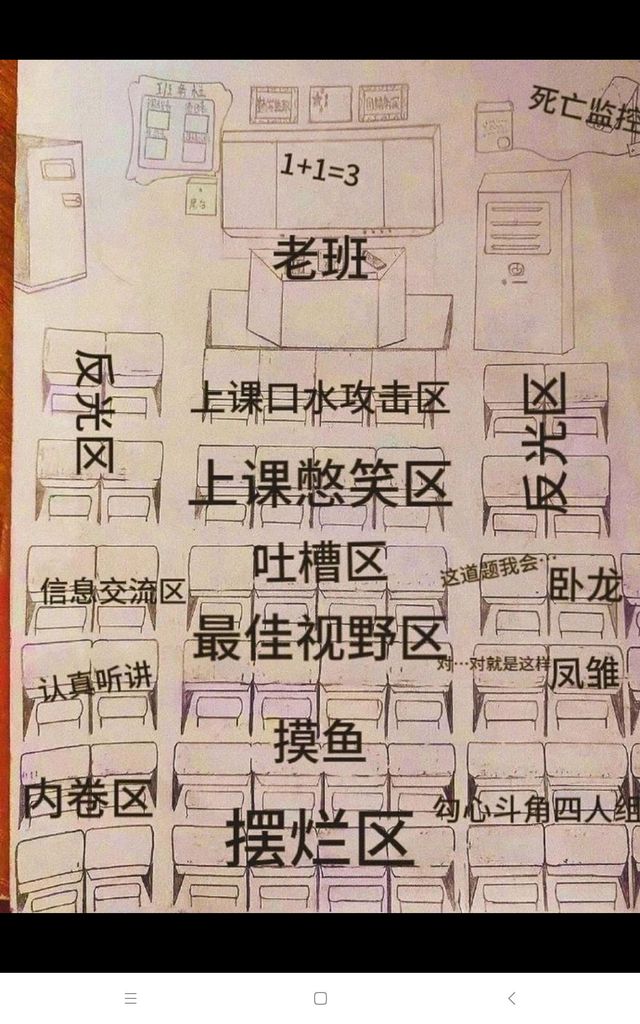 死亡监控
1+1=3
老班
反光区
上课口水攻击区
反光区
上课憋笑区
吐槽区
这道题我会…
卧龙
信息交流区
最佳视野区
对…对就是这样
凤雏
认真听讲
摸鱼
内卷区
勾心斗角四人组
摆烂区